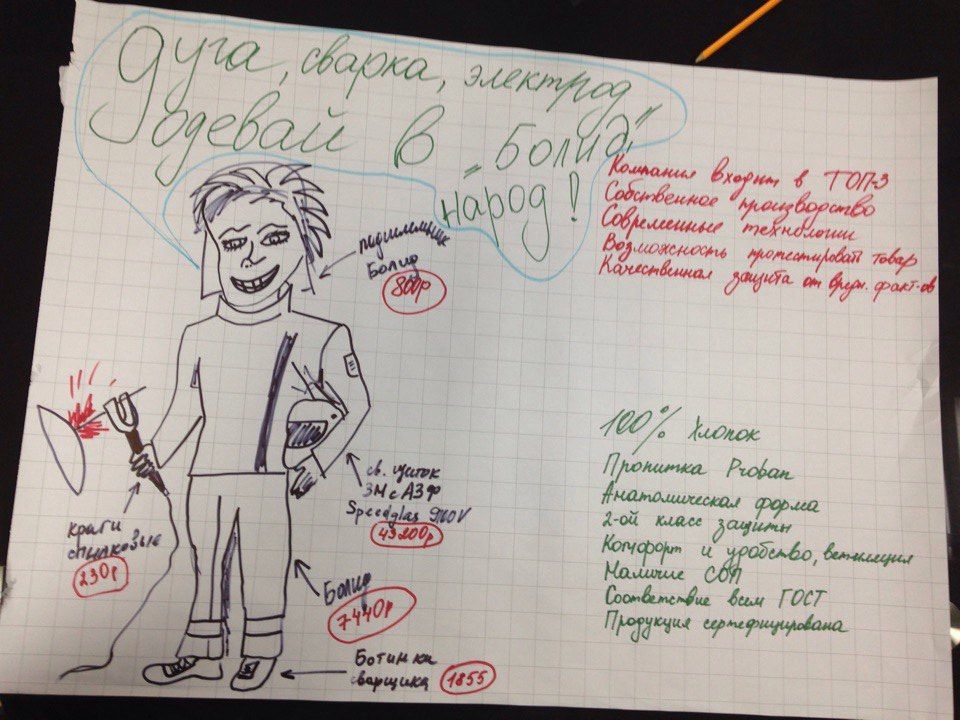 Дуга, сварка, электрод
одевай в „Болид"
народ!
Компания входит в ТОП-3
Собственное производство
Современные технологии
Возможность протестировать товар
Качественная защита от вредн. факт-ов
подшлемник
Болид
800р
св. щиток
3М с АЗФ
Speedglas 9100V
43200р
краги
спилковые
230р
Болид
7440р
Ботинки
сварщика 1855
100% Хлопок
Пропитка Proban
Анатомическая форма
2-ой класс защиты
Комфорт и удобство, вентиляция
Наличие СОП
Соответствие всем ГОСТ
Продукция сертефицирована